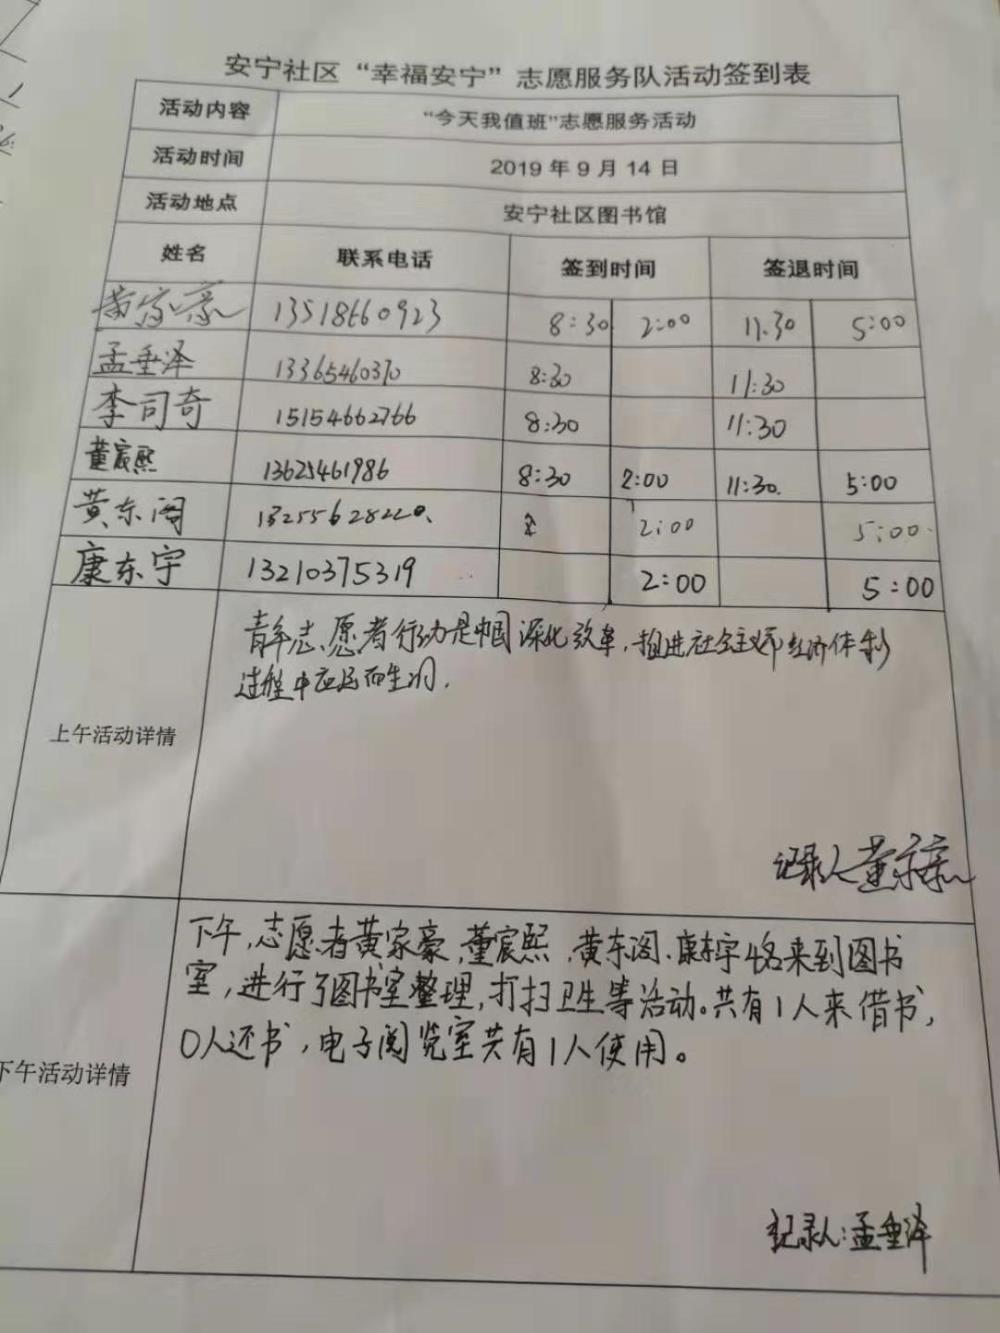 安宁社区“幸福安宁”志愿服务队活动签到表
活动内容 “今天我值班”志愿服务活动
活动时间 2019年9月14日
活动地点 安宁社区图书馆
姓名 联系电话 签到时间 签退时间
黄家豪 13518660923 8:30 2:00 11.30 5:00
孟垂泽 13365460370 8:30 11:30
李司奇 15154662766 8:30 11:30
董宸熙 13625461986 8:30 2:00 11:30. 5:00
黄东阁 13255628220. 2:00 5:00.
康东宇 13210375319 2:00 5:00
青年志愿者行动是中国深化改革,推进社会主义市经济体制
过程中应运而生的.
上午活动详情
记录人
下午,志愿者黄家豪,董宸熙,黄东阁.康东宇4名来到图书
室,进行了图书室整理,打扫卫生等活动。共有1人来借书,
0人还书,电子阅览室共有1人使用。
下午活动详情
记录人:孟垂泽